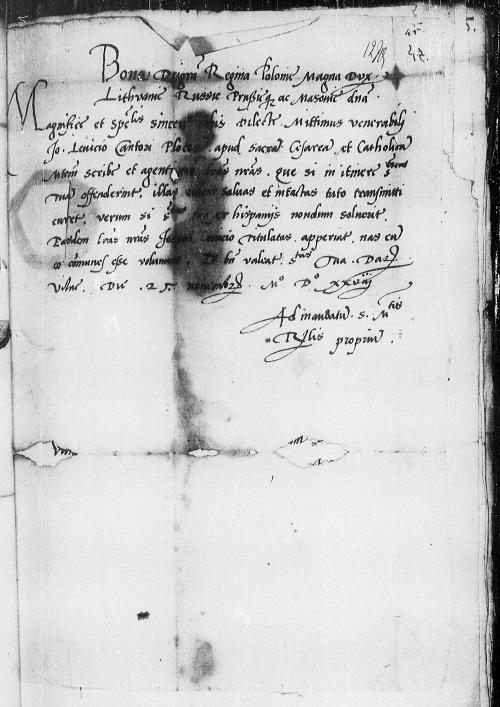 Bona Dei gra Regina Polonie Magna Dux
Lithuanie Russie Prussieq ac Masovie dna
Magnifice et spelis sincere nobis dilecte. Mittimus venerabili
Jo. Levicio Cantori Plocen apud sacra Cesarea et Catholica
Mtem scribe et agenti lras nras. que si in itinere Stem
Tua offenderint. illas salvas et intactas tuto transmitti
curet. verum si Stas ex hispanijs nondum solverit.
Easdem lras nras Levicio titulatas aperiat. nas eu
co comunes esse volumus. Et bn valeat Stas Tua. Dat
Vilne. Die . 25 . novembr. Mo Do xxviij
Ad mandatu S. Mtis
Rlis propriu.